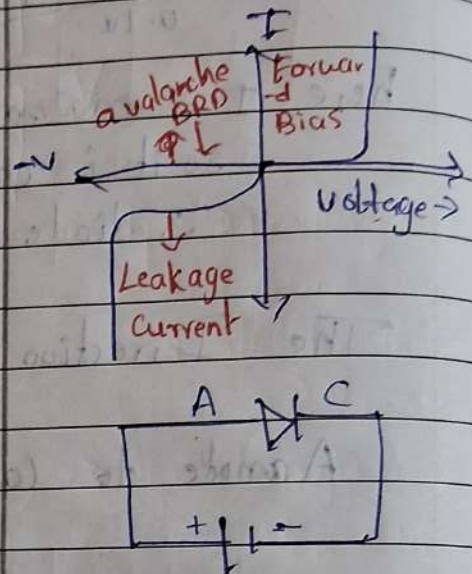 I
avalanche
BRD
Forwar
-d
Bias
-V
Voltage →
Leakage
Current
A C
+ -